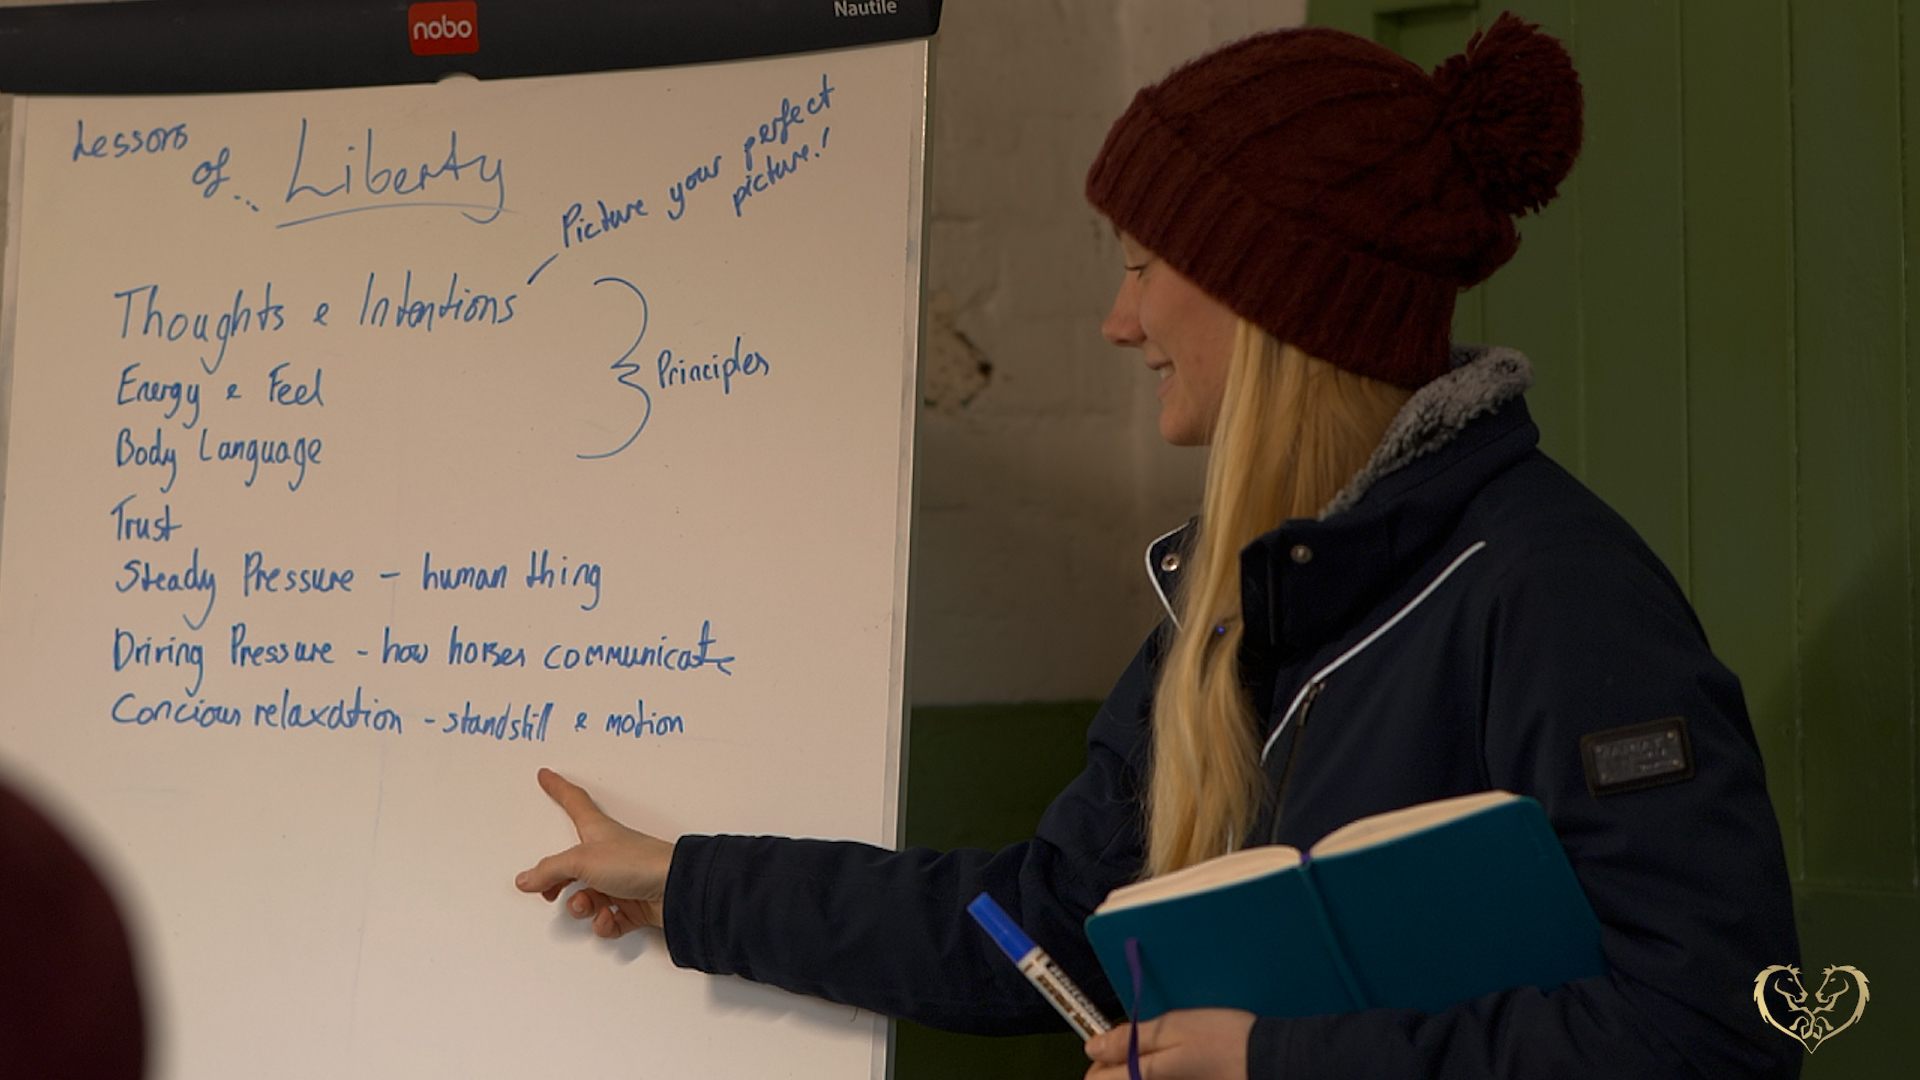 nobo
Nautile
Lessons
of... Liberty
Picture your perfect
picture!
Thoughts & Intentions
Energy & Feel
Body Language
Principles
Trust
Steady Pressure - human thing
Driving Pressure - how horses communicate
Concious relaxation - standstill & motion